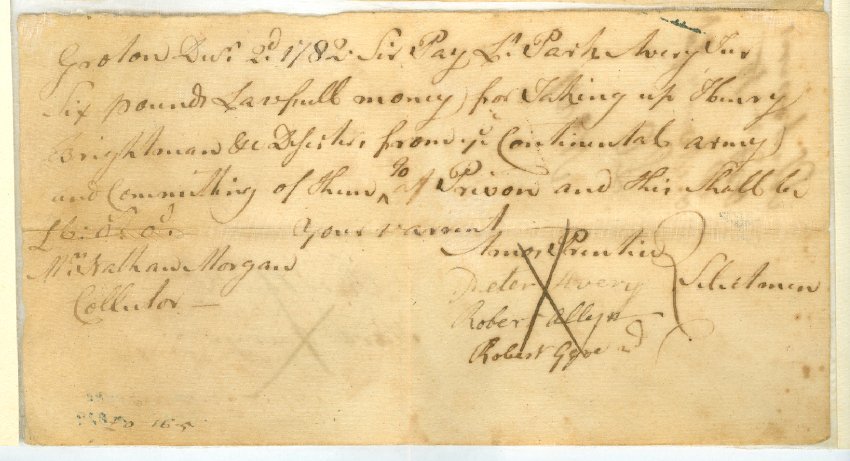 Groton Decr. 2d 1782 Sir Pay Lt. Park Avery Jur
Six pounds Lawfull money for Taking up Henry
Brightman &c Deserters from ye Continental army
and Committing of them to Prison and this Shall be
£6: 0s. 0d. Your warrent
Mr. Nathan Morgan
Collector —
Amos Prentice
Peter Avery
Robert Allyn
Robert Geer
Selectmen